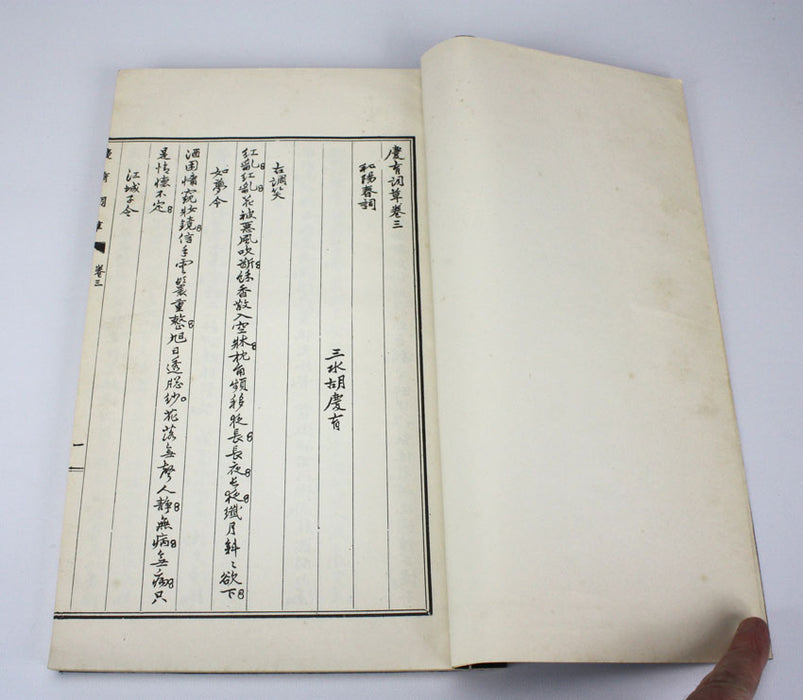 慶育詞草卷三
和陽春詞
三水胡慶育
古調笑
紅亂紅亂花被惡風吹斷餘香散入空牀枕角頻移夜長長夜長夜纖月斜斜欲下
如夢令
酒困慵窺妝鏡信手雲鬟重整旭日透窗紗花落無聲人靜無病無病只
是情懷不定
江城子令
慶育詞草 卷三 一